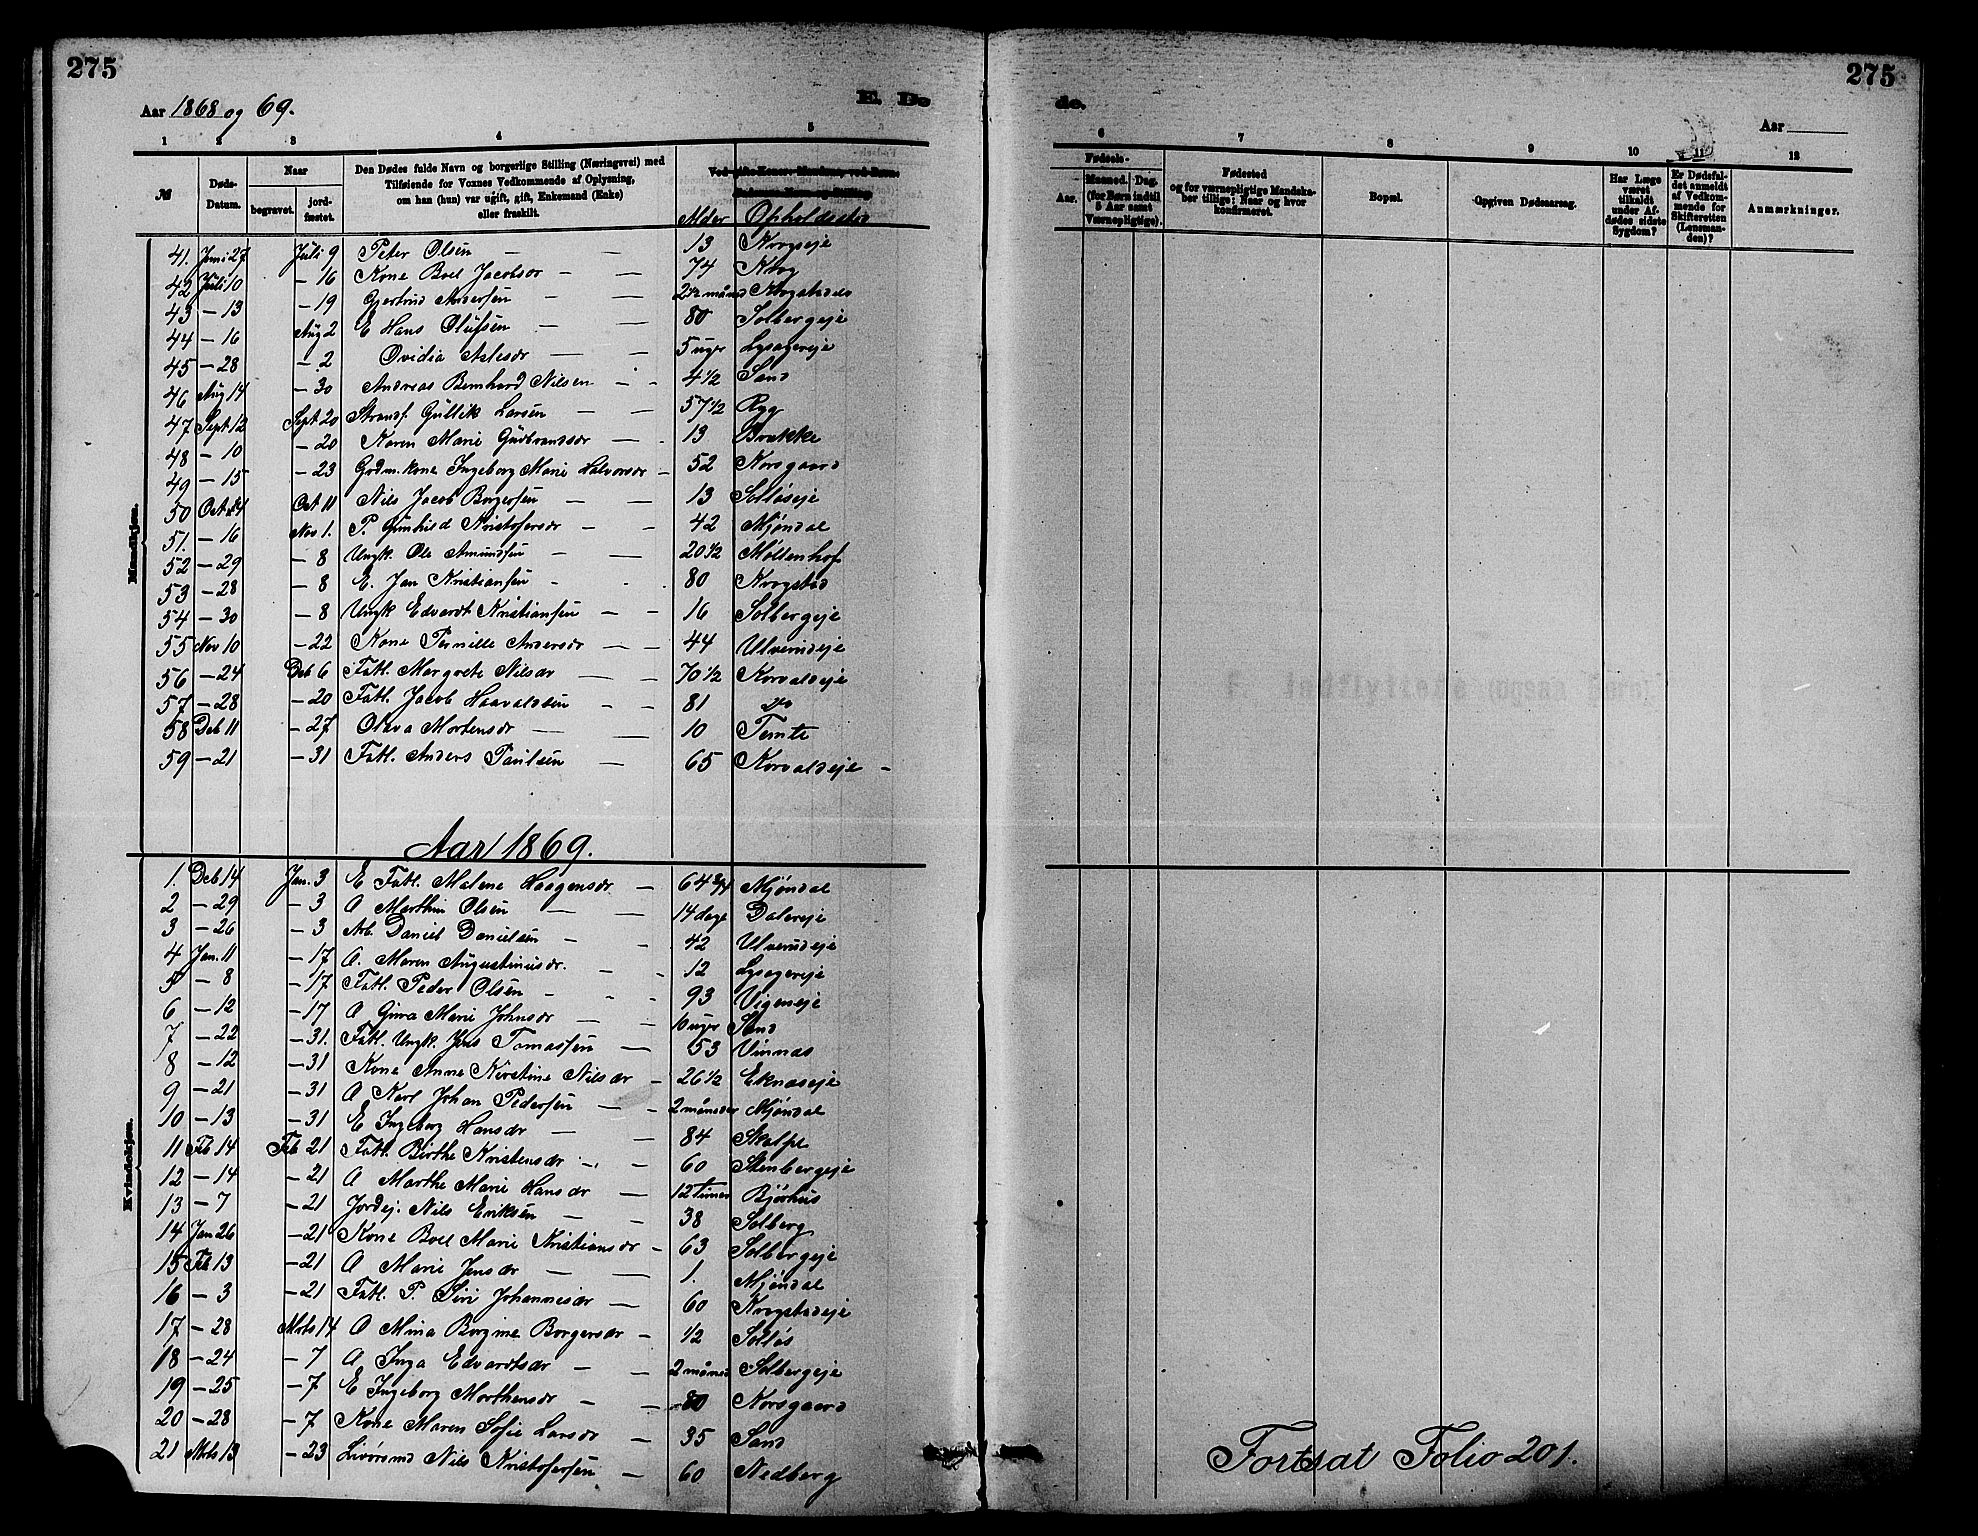 275
275
Aar 1868 og 69.
E. Dø
de.
Aar
1 2 3 4 5 6 7 8 9 10 11 12
№
Døds-Datum.
Naar
begravet.
jordfæstet.
Den Dødes fulde Navn og borgerlige Stilling (Næringsvei) med
Tilføiende for Voxnes Vedkommende af Oplysning,
om han (hun) var ugift, gift, Enkemand (Enke)
eller fraskilt.
Alder
Opholdssted
Fødsels-
Aar.
Maaned.
Dag.
(for Børn indtil
5 Aar samt
Værnepligtige).
Fødested
og for værnepligtige Mandskaber tillige: Naar og hvor
konfirmeret.
Bopæl.
Opgiven Dødsaarsag.
Har Læge
været
tilkaldt
under Afdødes sidste
Sygdom?
Er Dødsfaldet anmeldt
af Vedkommende for
Skifteretten
(Lensmanden)?
Anmærkninger.
Mandkjøn.
41. Juni 27 Juli 9 Peter Olsen — — 13 Krogseje
42 Juli 10 — 16 Kone Boel Jacobsdr — — 74 Krog
43 — 13 — 19 Gjertrud Andersen — — 2 1/2 måned Krogstadeie
44 — 16 Aug 2 E Hans Olufsen — — 80 Solbergeje
45 — 28 — 2 Ovidia Aslesdr — — 5 uger Lysagereje
46 Aug 14 — 30 Andreas Bernhard Nilsen — - 4 1/2 Sand
47 Sept 12 Sept 20 Strandf. Gullik Larsen — — 57 1/2 Ryg
48 — 10 — 20 Karen Marie Gudbrandsdr — . 13 Brække
49 — 15 — 23 Grdm.kone Ingeborg Marie Halvorsdr — 52 Korsgaard
50 Oct 4 Oct 11 Nils Jacob Borgersen — — 13 Solløseje
51. — 16 Nov 1. P. Gunhild Kristofersdr — - 42 Mjøndal
52 — 29 — 8 Ungk. Ole Amundsen — — 20 1/2 Møllenhof
53 — 28 — 8 E. Jan Kristiansen - . 80 Krogstad
54 — 30 — 8 Ungk Edvardt Kristiansen — - 16 Solbergeje
55 Nov 10 — 22 Kone Pernille Andersdr — — 44 Ulverudeje
56 — 24 Deb 6 Fatl. Margrete Nilsdr — — 70 1/2 Korvaldeje
57 — 28 — 20 Fatl. Jacob Haavaldsen — — 81 do
58 Deb 11 — 27 Olava Mortensdr — — 10 Temte
59 — 21 — 31 Fatl. Anders Paulsen — 65 Korvaldeje -
Aar 1869.
Kvindekjøn.
1. Deb 14 Jan. 3 E Fatl. Malene Haagensdr — 64 3/4 Mjøndal
2 — 29 — 3 A Marthin Olsen — — 14 dage Dalereje
3 — 26 — 3 Arb. Daniel Danielsen — - 42 Ulverudeje
4 Jan. 11 — 17 A. Maren Augustinusdr. — - 12 Lysagereje
5 — 8 — 17 Fatl. Peder Olsen — - - 93 Vigeneje
6 — 12 — 17 A Gina Marie Johnsdr — — 10 uger Sand
7 — 22 — 31. Fatl. Ungk. Jens Tomassen — 53 Vinnæs
8 — 12 — 31 Kone Anne Kirstine Nilsdr — 26 1/2 Eknæseje
9 — 21 — 31 A Karl Johan Pedersen — - 2 måneder Mjøndal
10 — 13 — 31 E Ingeborg Hansdr — — 84 Skalpe
11 Feb 14 Feb 21 Fatl. Birthe Kristensdr - — 60 Stenbergeje
12 — 14 — 21 A Marthe Marie Hansdr — 12 timer Bjørhus
13 — 7 — 21 Jordej. Nils Eriksen — - 38 Solberg
14 Jan 26 — 21 Kone Boel Marie Kristiansdr — 63 Solbergeje
15 Feb 13 — 21 A Marie Jensdr — — 1. Mjøndal
16 — 3 — 21 Fatl. P. Siri Johannesdr — 60 Krogstadeje
17 — 28 Mrts 14 A Mina Borgine Borgersdr — 1/2 Solløs
18 — 24 — 7 A Inga Edvardtsdr — - 2 måned Solbergeje
19 — 25 — 7 E Ingeborg Morthensdr — — 80 Korsgaard
20 — 28 — 7 Kone Maren Sofie Larsdr — 35 Sand
21 Mrts 13 — 23 Nils Kristofersen — 60 Nedberg
Fortsat Folio 201.